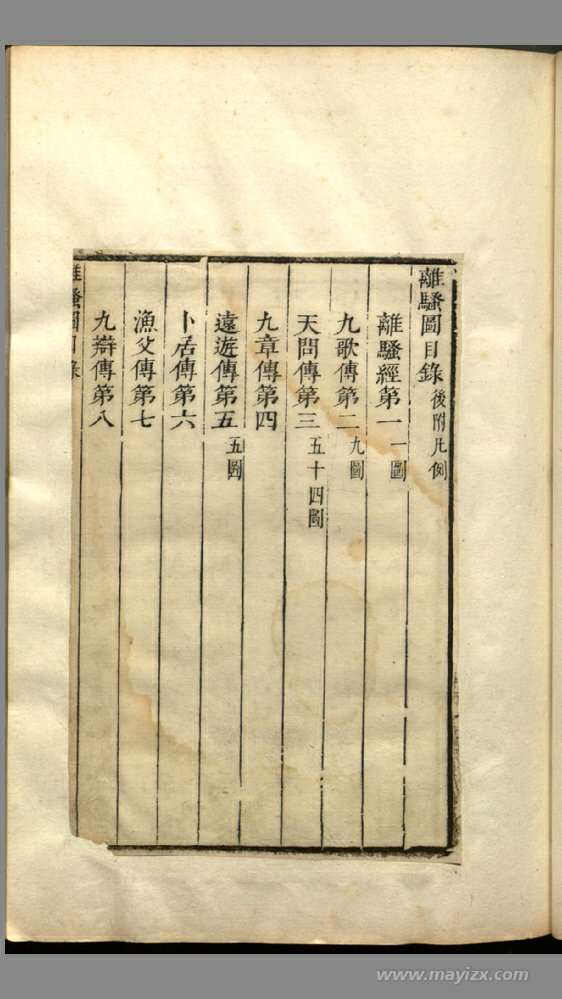 離騷圖目錄 後附凡例
離騷經第一 一圖
九歌傳第二 九圖
天問傳第三 五十四圖
九章傳第四
遠遊傳第五 五圖
卜居傳第六
漁父傳第七
九辯傳第八
離騷圖目錄
www.mayizx.com